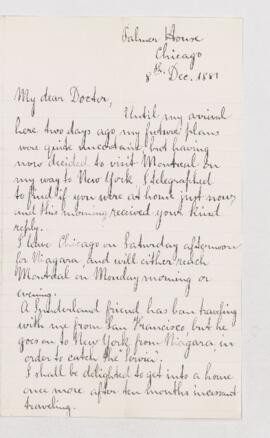 Palmer House
Chicago
8th Dec. 1881
My dear Doctor,
Until my arrival
here two days ago my future plans
were quite uncertain but having
now decided to visit Montreal on
my way to New York, I telegraphed
to find if you were at home just now,
and this morning received your kind
reply.
I leave Chicago on Saturday afternoon
for Niagara, and will either reach
Montreal on Monday morning or
evening.
A Sunderland friend has been traveling
with me from San Francisco but he
goes on to New York from Niagara, in
order to catch the "Servia".
I shall be delighted to get into a home
once more, after ten months incessant
traveling.